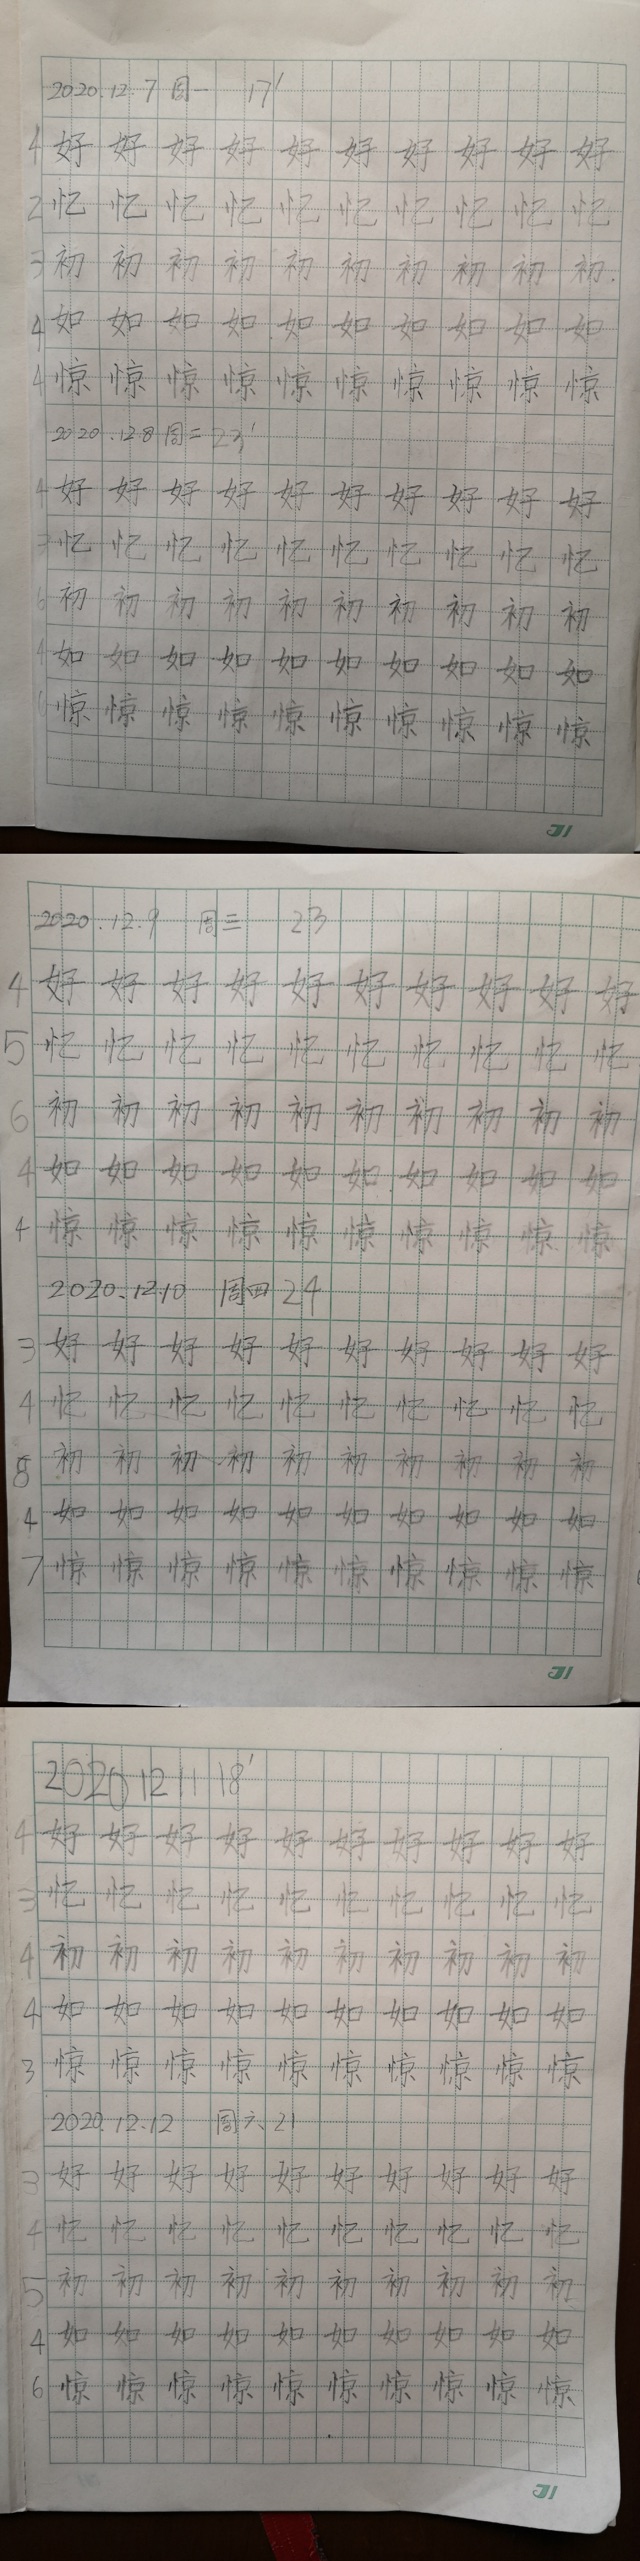 2020.12.7 周一 17'
4 好 好 好 好 好 好 好 好 好 好
2 忆 忆 忆 忆 忆 忆 忆 忆 忆 忆
3 初 初 初 初 初 初 初 初 初 初
4 如 如 如 如 如 如 如 如 如 如
4 惊 惊 惊 惊 惊 惊 惊 惊 惊 惊
2020.12.8 周二 23'
4 好 好 好 好 好 好 好 好 好 好
3 忆 忆 忆 忆 忆 忆 忆 忆 忆 忆
6 初 初 初 初 初 初 初 初 初 初
4 如 如 如 如 如 如 如 如 如 如
惊 惊 惊 惊 惊 惊 惊 惊 惊 惊
2020.12.9 周三 23
4 好 好 好 好 好 好 好 好 好 好
5 忆 忆 忆 忆 忆 忆 忆 忆 忆 忆
6 初 初 初 初 初 初 初 初 初 初
4 如 如 如 如 如 如 如 如 如 如
4 惊 惊 惊 惊 惊 惊 惊 惊 惊 惊
2020.12.10 周四 24
3 好 好 好 好 好 好 好 好 好 好
4 忆 忆 忆 忆 忆 忆 忆 忆 忆 忆
8 初 初 初 初 初 初 初 初 初 初
4 如 如 如 如 如 如 如 如 如 如
7 惊 惊 惊 惊 惊 惊 惊 惊 惊 惊
2020 12 11 18'
4 好 好 好 好 好 好 好 好 好 好
3 忆 忆 忆 忆 忆 忆 忆 忆 忆 忆
4 初 初 初 初 初 初 初 初 初 初
4 如 如 如 如 如 如 如 如 如 如
3 惊 惊 惊 惊 惊 惊 惊 惊 惊 惊
2020.12.12 周六 21
3 好 好 好 好 好 好 好 好 好 好
4 忆 忆 忆 忆 忆 忆 忆 忆 忆 忆
5 初 初 初 初 初 初 初 初 初 初
4 如 如 如 如 如 如 如 如 如 如
6 惊 惊 惊 惊 惊 惊 惊 惊 惊 惊